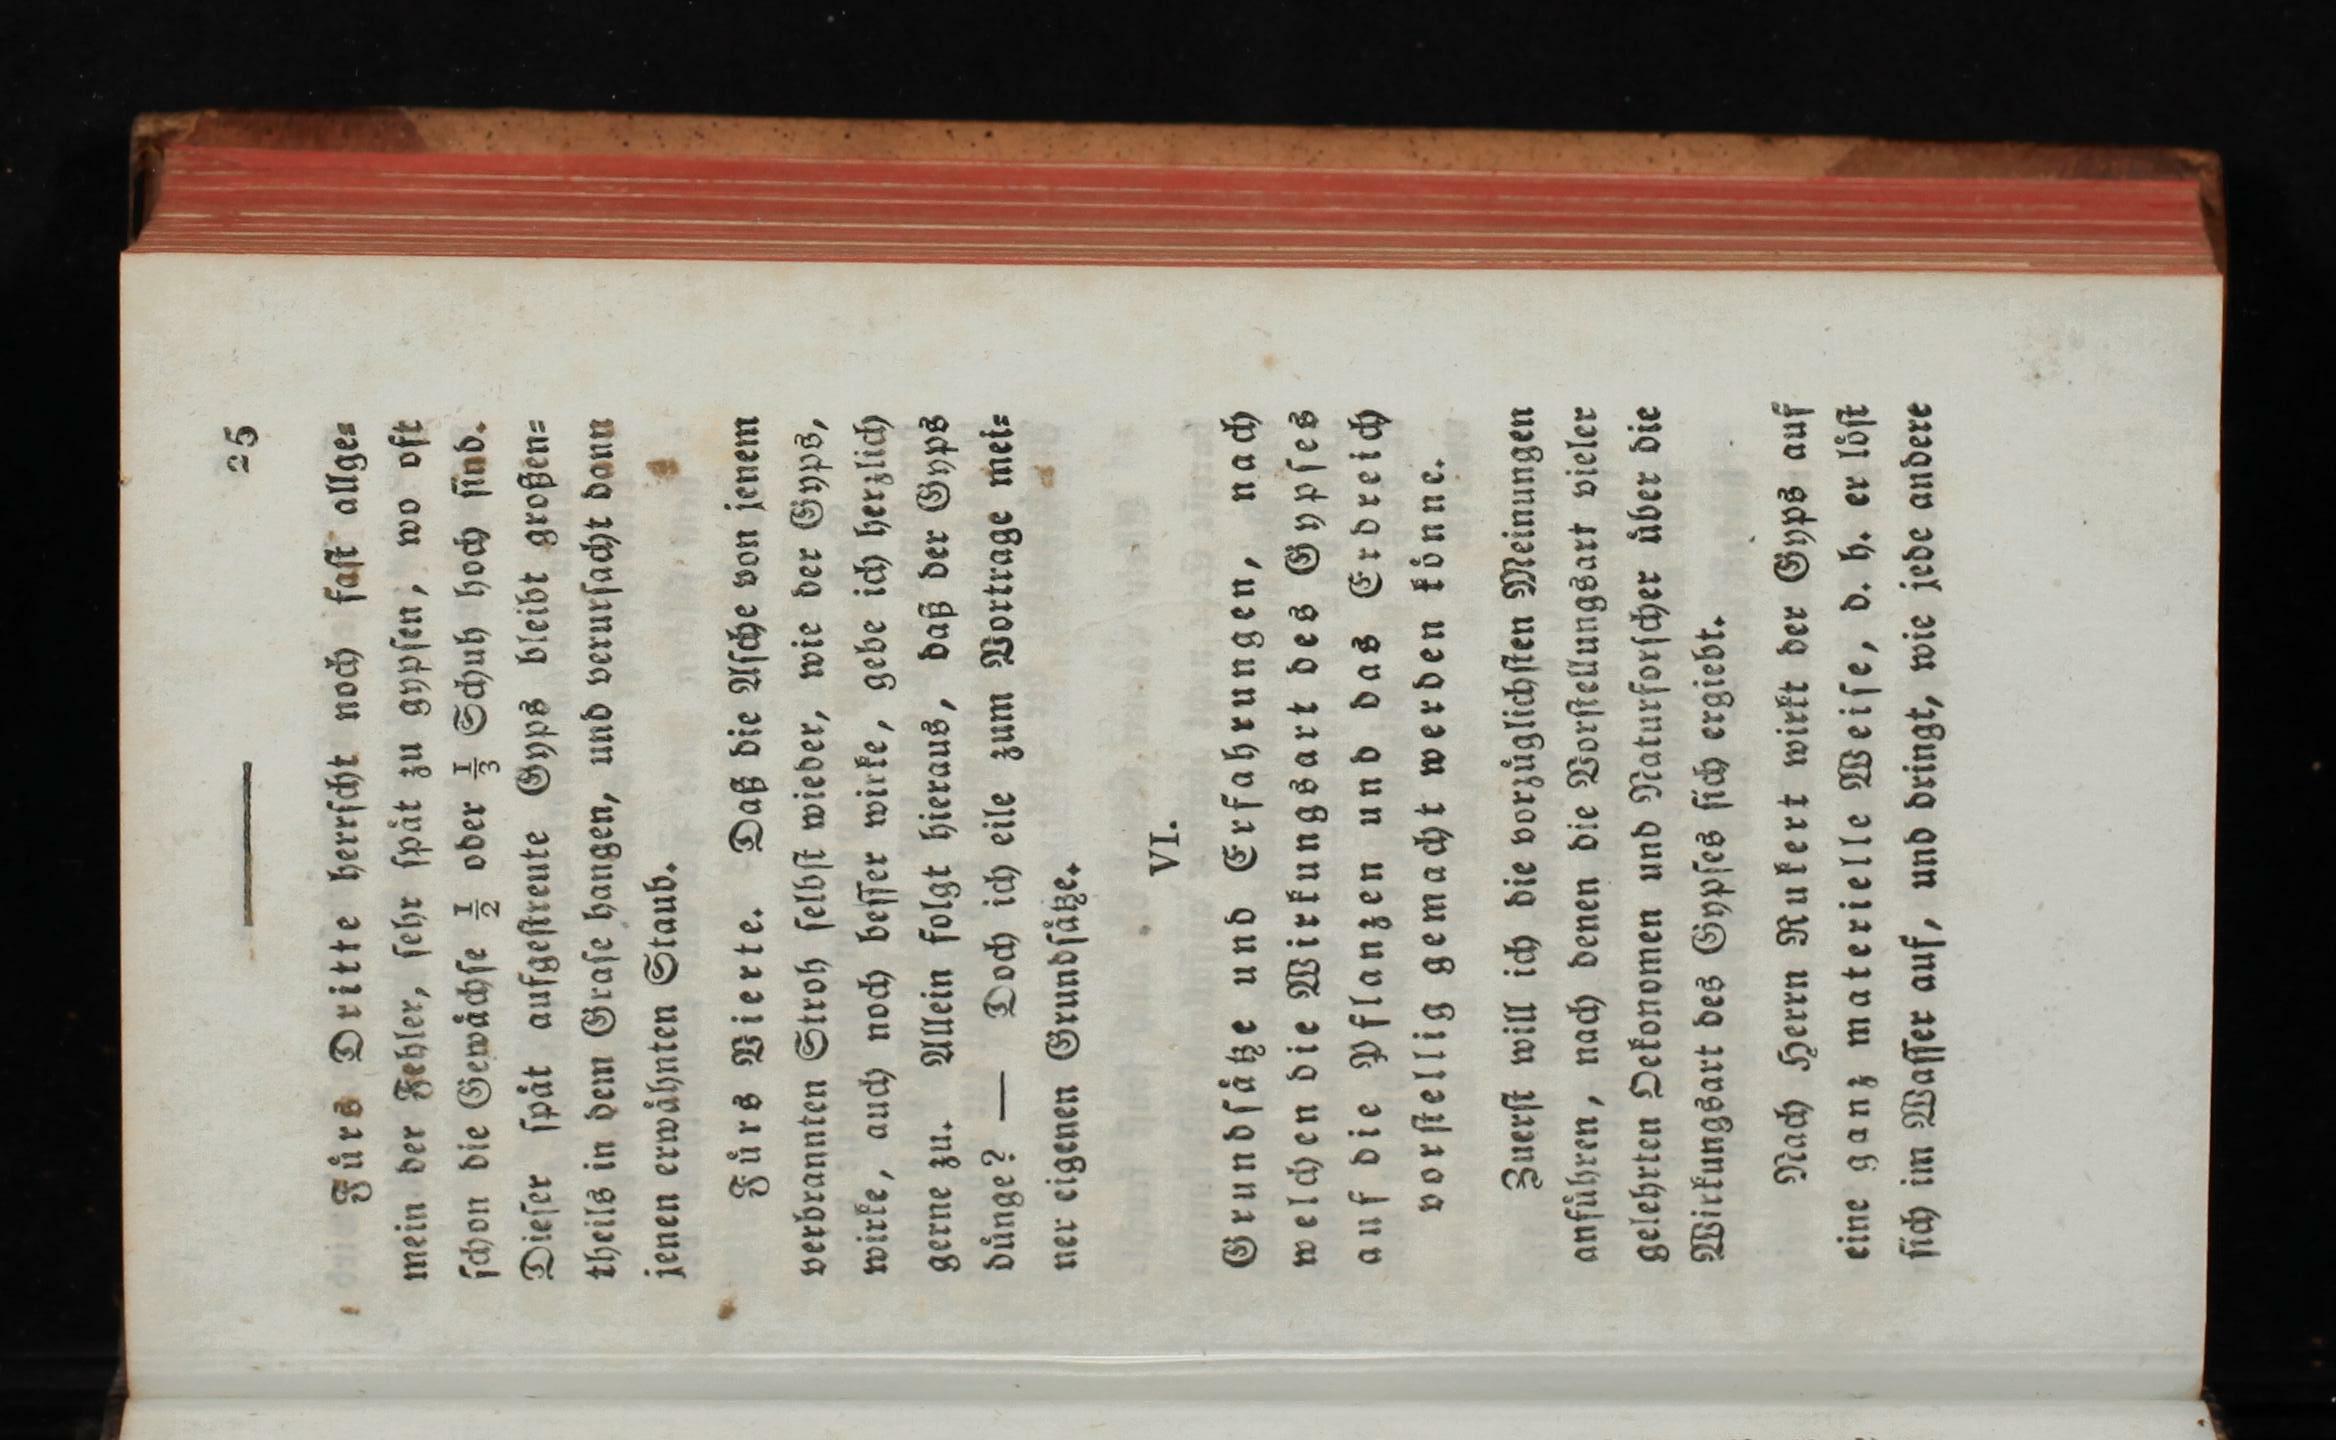 25
Fürs Dritte herrſcht noch faſt allge⸗
mein der Fehler, ſehr ſpät zu gypſen, wo oft
ſchon die Gewächſe ½ oder ⅓ Schuh hoch ſind.
Dieſer ſpät aufgeſtreute Gyps bleibt großen⸗
theils in dem Graſe hangen, und verurſacht dann
jenen erwähnten Staub.
Fürs Vierte. Daß die Aſche von jenem
verbrannten Stroh ſelbſt wieder, wie der Gyps,
wirke, auch noch beſſer wirke, gebe ich herzlich
gerne zu. Allein folgt hieraus, daß der Gyps
dünge? — Doch ich eile zum Vortrage mei⸗
ner eigenen Grundſätze.
VI.
Grundſätze und Erfahrungen, nach
welchen die Wirkungsart des Gypſes
auf die Pflanzen und das Erdreich
vorſtellig gemacht werden könne.
Zuerſt will ich die vorzüglichſten Meinungen
anführen, nach denen die Vorſtellungsart vieler
gelehrten Oekonomen und Naturforſcher über die
Wirkungsart des Gypſes ſich ergiebt.
Nach Herrn Rukert wirkt der Gyps auf
eine ganz materielle Weiſe, d. h. er löſt
ſich im Waſſer auf, und dringt, wie jede andere